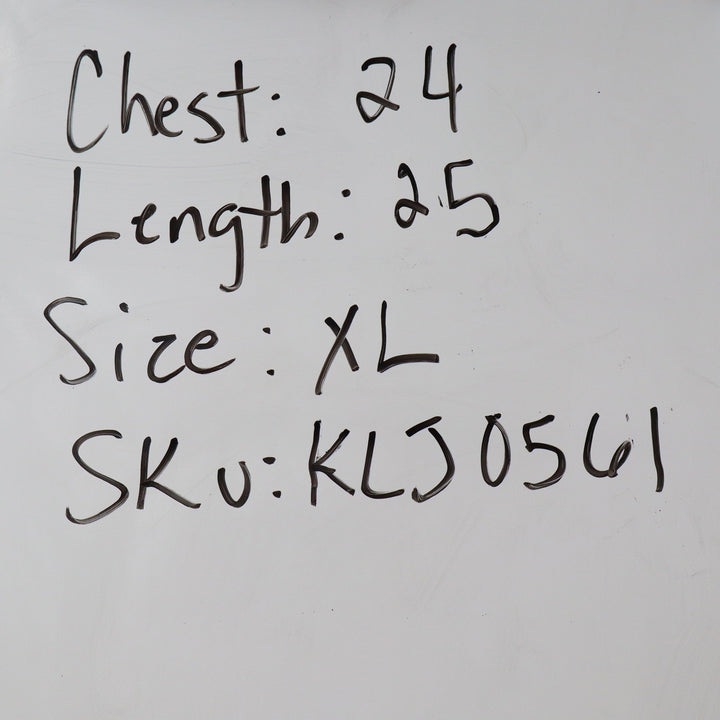 Chest: 24
Length: 25
Size: XL
SKU: KLJ0561